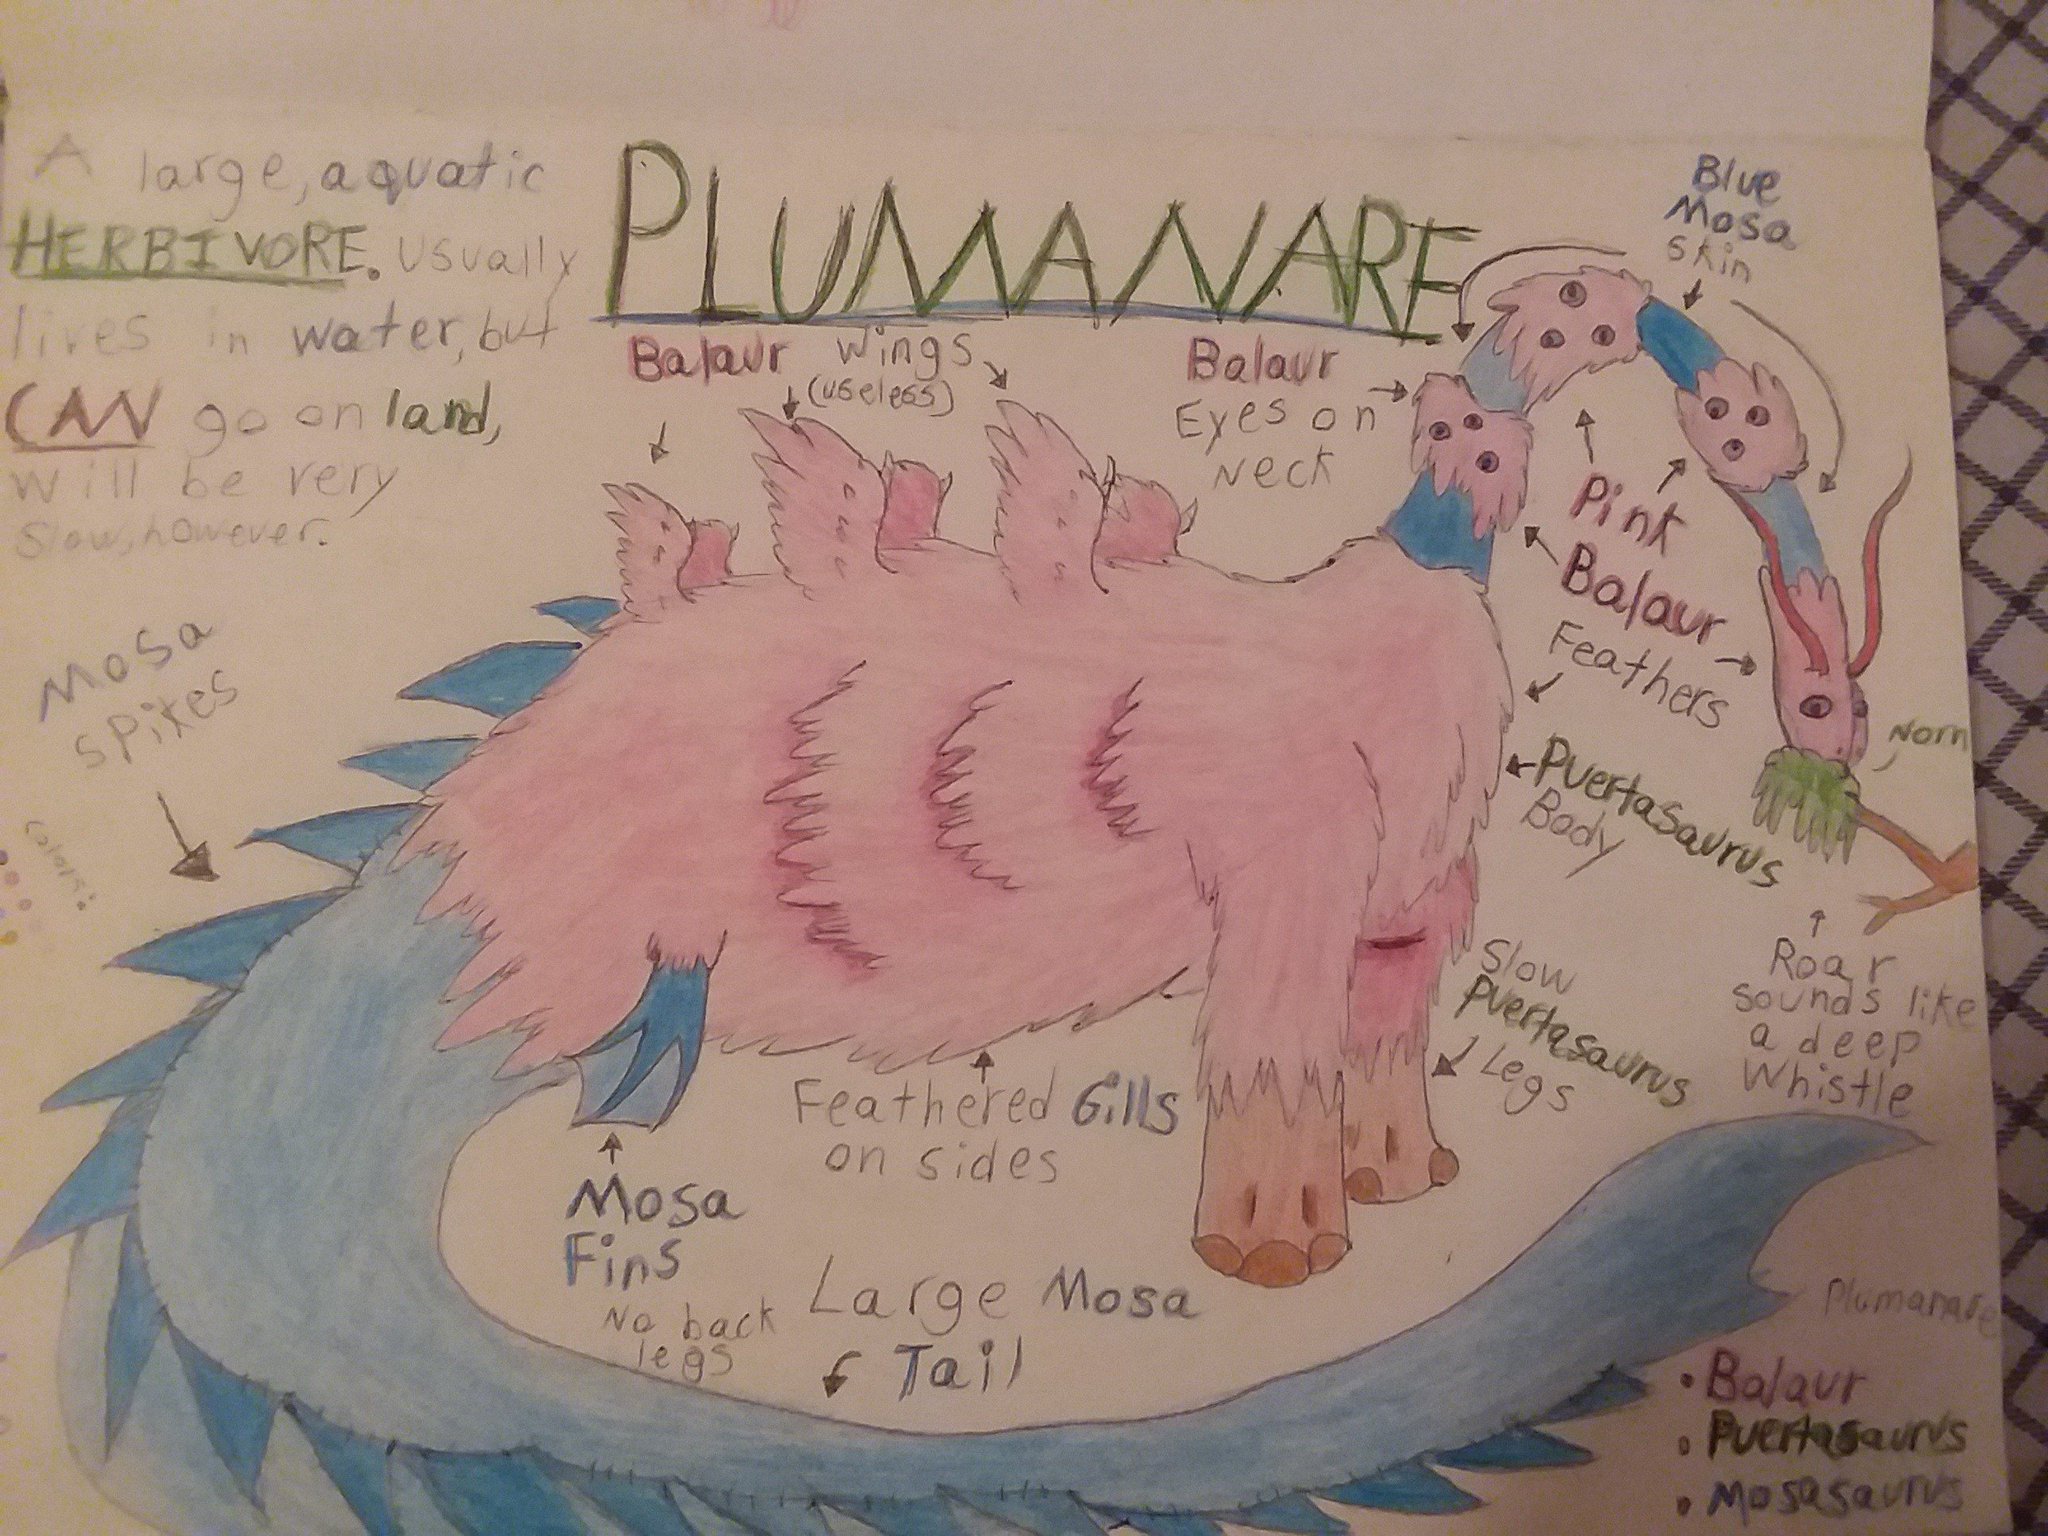 A large, aquatic
HERBIVORE. Usually
lives in water, but
CAN go on land,
will be very
slow, however.
PLUMANARE
Blue
Mosa
skin
Balaur wings
(useless)
Balaur
Eyes on
Neck
Pink
Balaur
Feathers
Mosa
spikes
Nom
Puertasaurus
Body
Colors:
Roar
sounds like
a deep
whistle
Slow
Puertasaurus
Legs
Feathered Gills
on sides
Mosa
Fins
No back
legs
Large Mosa
Tail
Plumanare
• Balaur
• Puertasaurus
• Mosasaurus